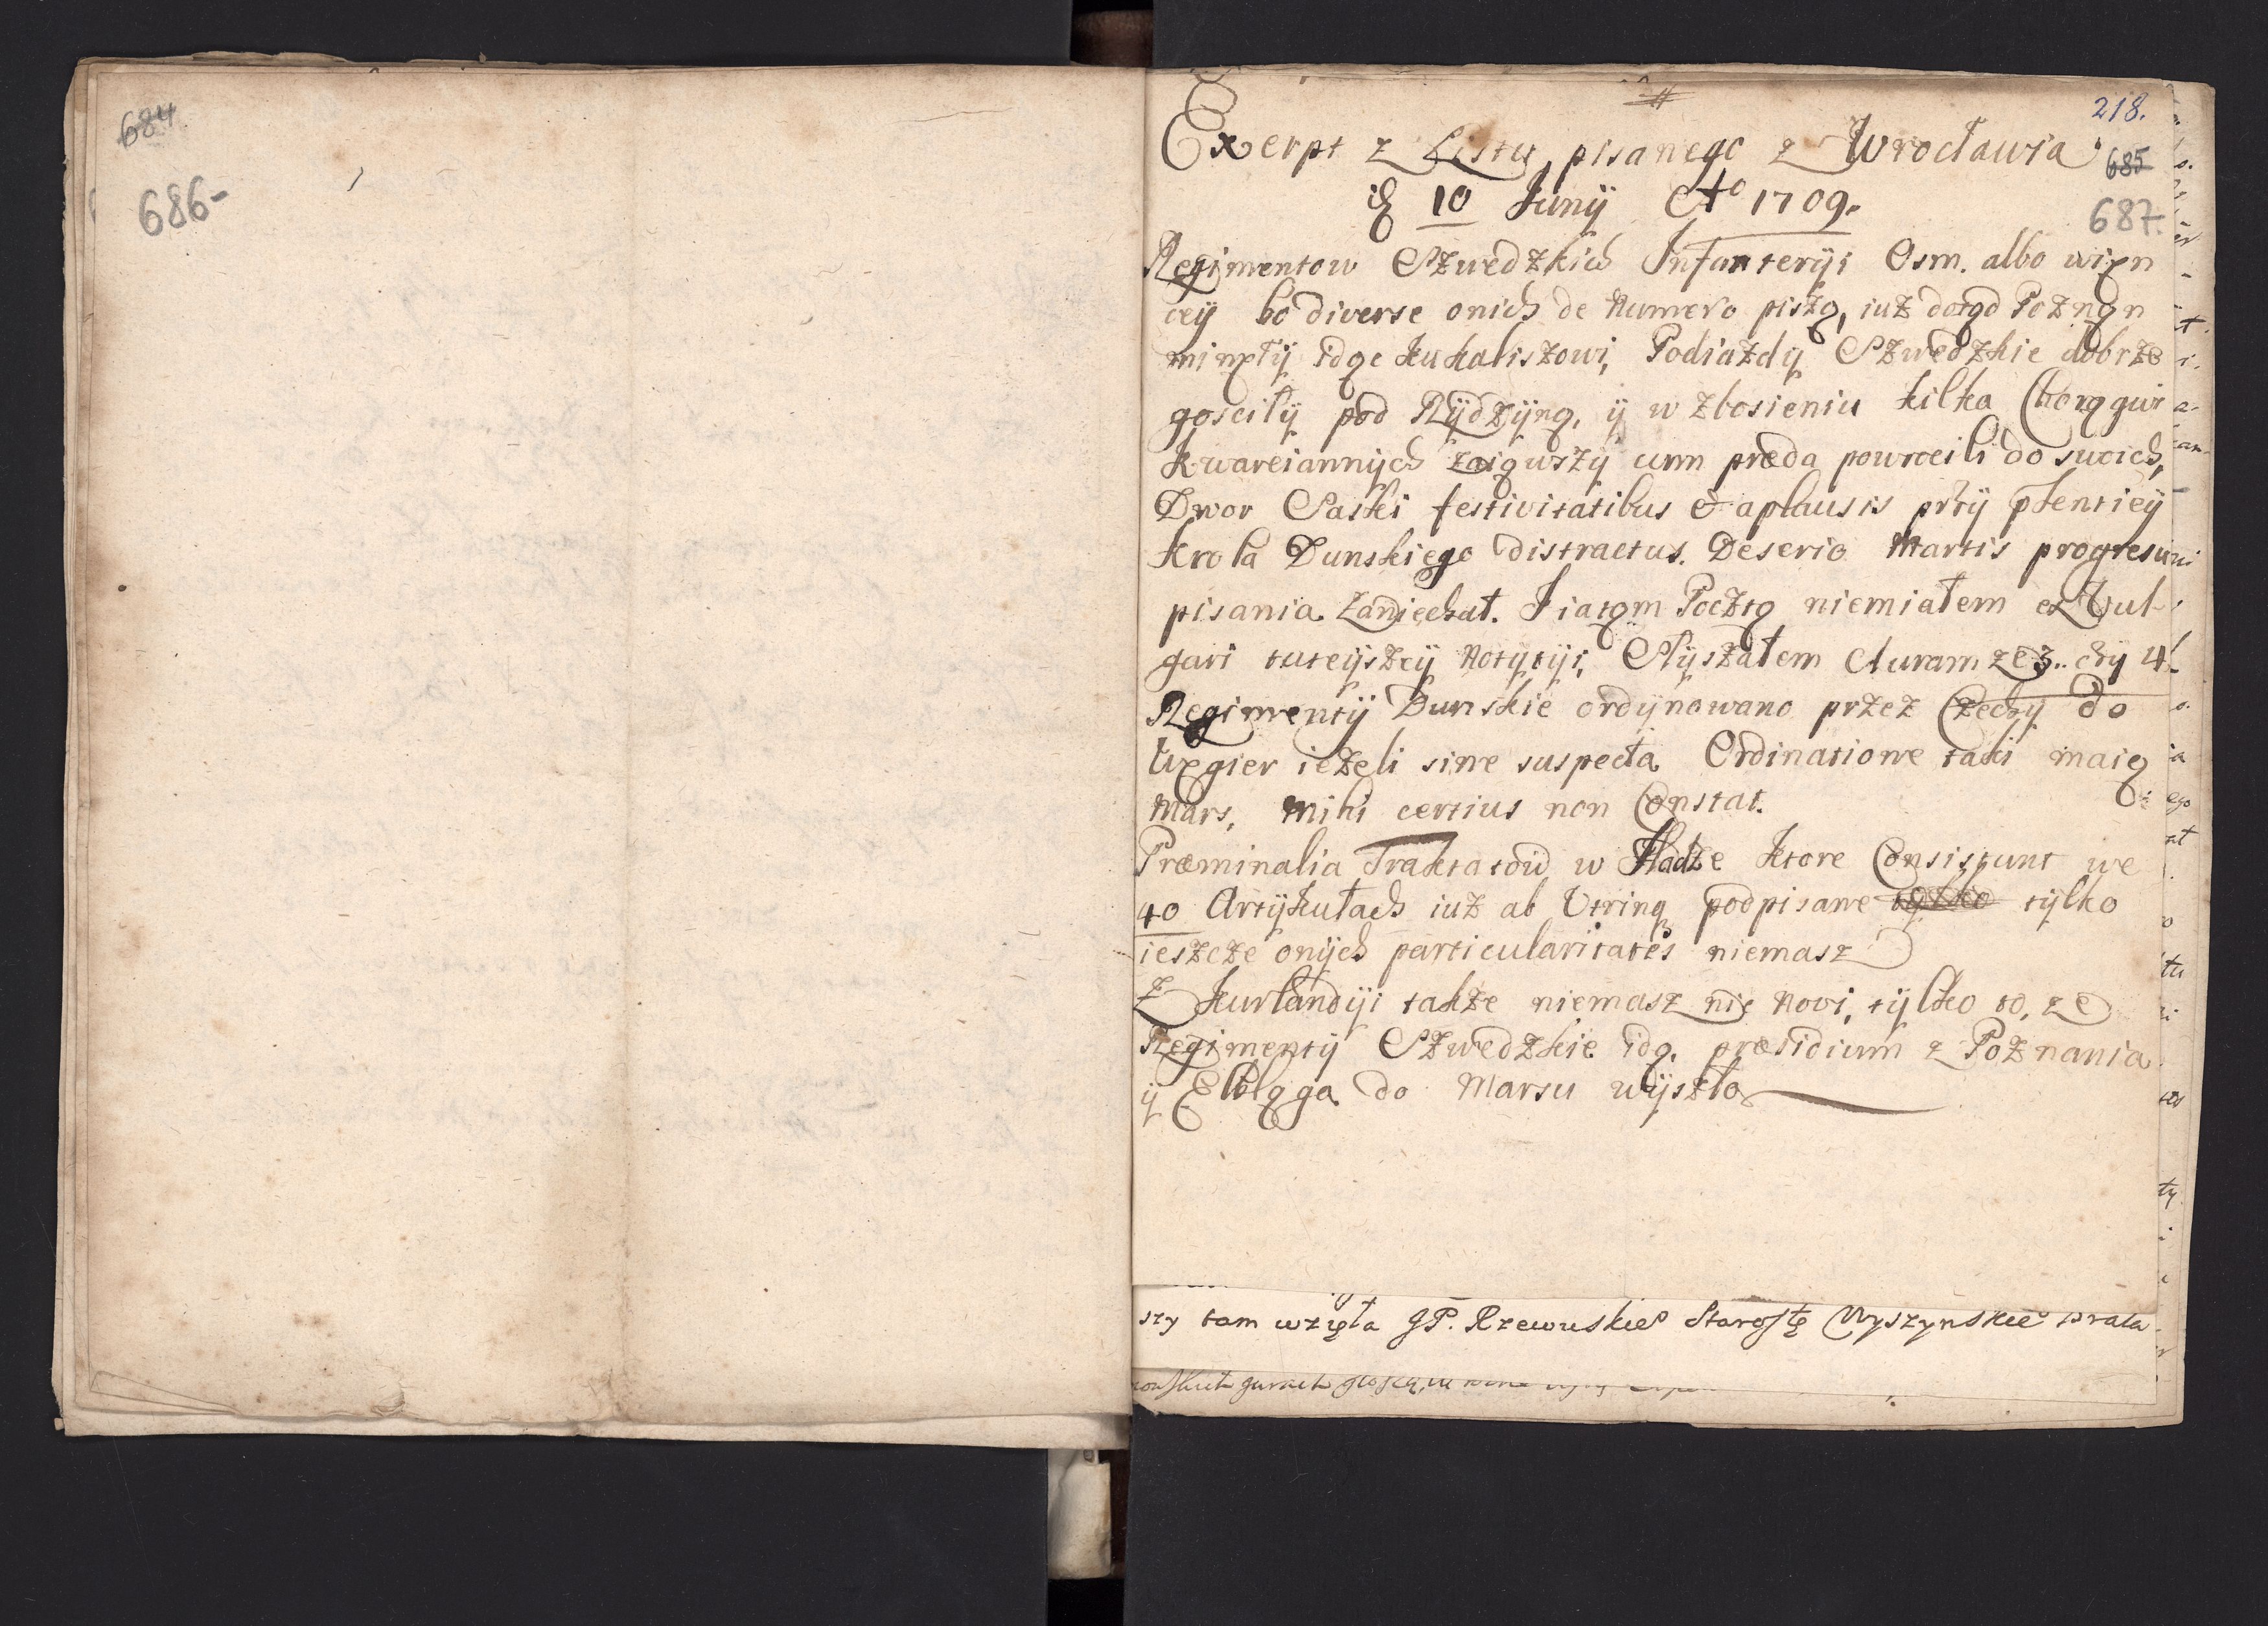 684
686-
218.
Exerpt z Listu pisanego z Wrocławia
685
10 Junÿ Ao 1709.
687.
Regimentow Szwedzkich Infanteryi Osm. albo więn
ceÿ bo diverse onich de Numero piszą, iuż dotąd Poznąn
minęłÿ idąc ku kaliszowi, Podiazdÿ Szwedzkie dobrze
gosciłÿ pod Rÿdzÿną, ÿ w Zbosieniu kilka Chorągwi
kwarciannÿch zaiąwszÿ cum præda powrocili do swoich,
Dwor Saski festivitatibus & aplausis przÿ ptentieÿ
krola Dunskiego distractus. Deserio Martis progresu
pisania Zaniechał. J ia tąm Pocztą niemiałem ex Vul-
gari tuteÿszeÿ Notÿtÿi, Slÿszałem Curam ze 3. czÿ 4
Regimentÿ Dunskie ordÿnowano przez Czechÿ do
Węgier ieżeli sine suspecta Ordinatione taki maią
Mars, mihi certius non Constat.
Præminalia Traktatow w Hadze ktore Consistunt we
40 Artÿkułach iuż ab Utrinq podpisane tÿlko
ieszcze onÿch particularitates niemasz
Z Kurlandÿi także niemasz nic Novi, tÿlko to, ze
Regimentÿ Szwedzkie idą. præsidium z Poznania
ÿ Elbląga do Marsu wÿszło
szy tam wzięła JP. Rzewuskieo Starostę Wyszynskieo brata